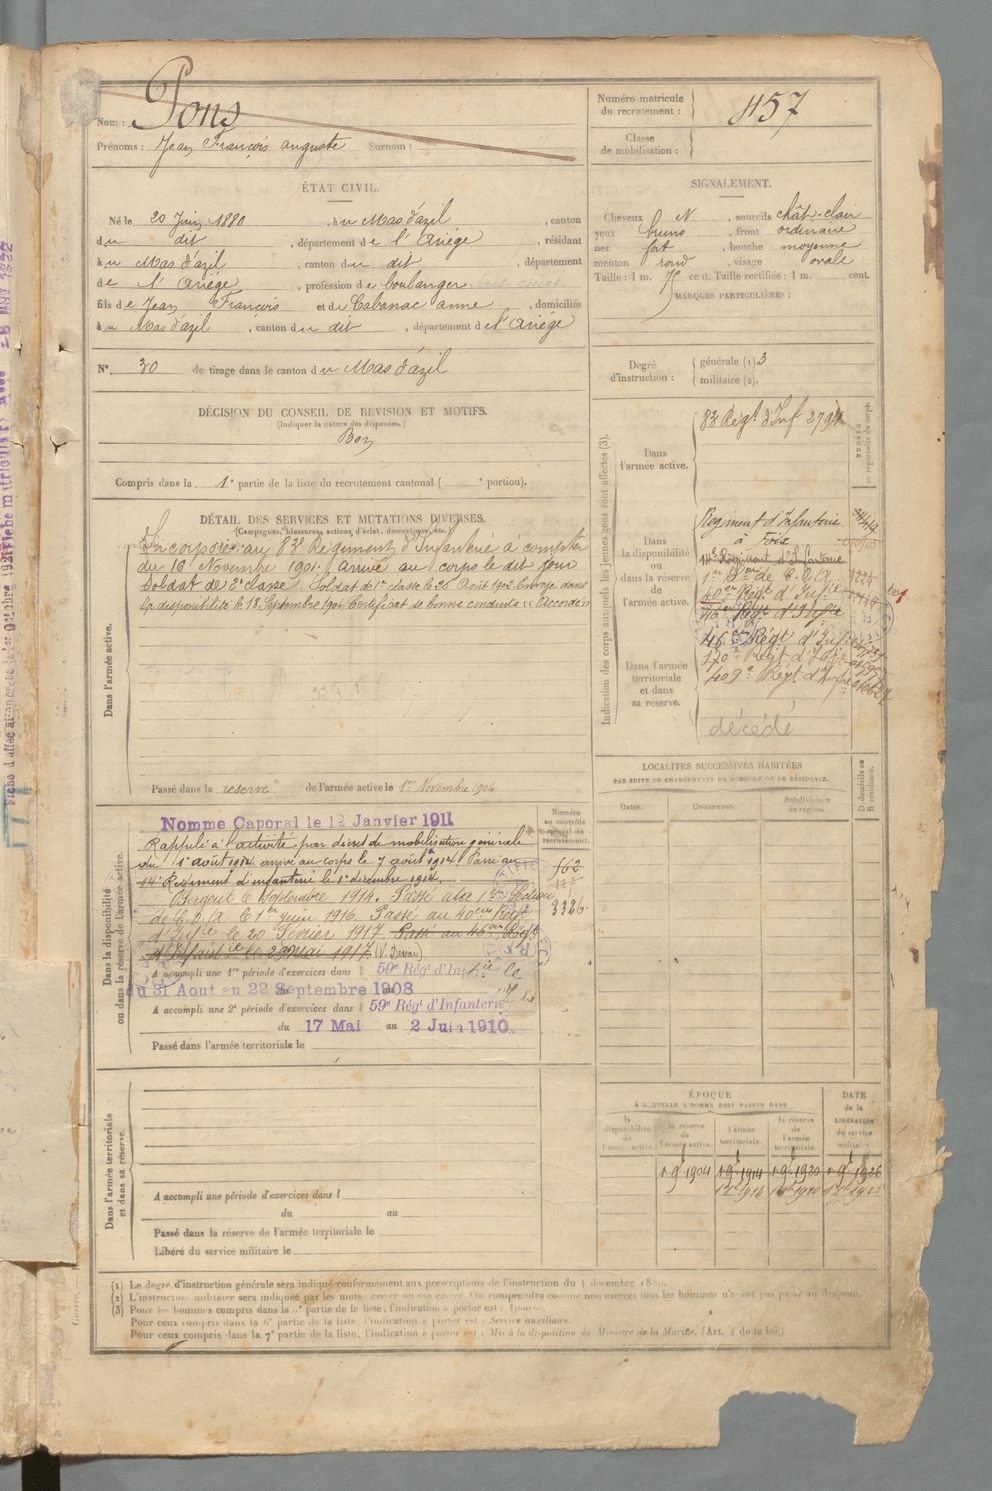 Nom : Pons
Prénoms : Jean François auguste Surnom :
Numéro matricule du recrutement : 457
Classe de mobilisation :
ÉTAT CIVIL.
Né le 20 Juin 1880, à u Mas d'azil, canton
du dit, département de l'Ariége, résidant
à u Mas d'azil, canton du dit, département
de l'Ariége, profession de boulanger
fils de Jean François et de Cabanac anne, domiciliés
à u Mas d'azil, canton du dit, département de l'Ariége
N° 30 de tirage dans le canton du Mas d'azil
SIGNALEMENT.
Cheveux N, sourcils chât-clair
yeux bruns, front ordinaire
nez fort, bouche moyenne
menton rond, visage ovale
Taille : 1 m. 75 cent. Taille rectifiée : 1 m. cent.
MARQUES PARTICULIÈRES :
Degré d'instruction : générale (1) 3
militaire (2).
DÉCISION DU CONSEIL DE REVISION ET MOTIFS.
(Indiquer la nature des dispenses.)
Bon
Compris dans la 1e partie de la liste du recrutement cantonal ( e portion).
DÉTAIL DES SERVICES ET MUTATIONS DIVERSES.
(Campagnes, blessures, actions d'éclat, décorations, etc.)
Dans l'armée active.
Incorporé au 83e Régiment d'Infanterie à compter
du 16 Novembre 1901. Arrivé au corps le dit jour
Soldat de 2e classe. Soldat de 1re classe le 20 Août 1902. Envoyé dans
la disponibilité le 18 Septembre 1904. Certificat de bonne conduite "Accordé"
Passé dans la réserve de l'armée active le 1er Novembre 1904
Indication des corps auxquels les jeunes gens sont affectés (3).
Dans l'armée active.
83e Régt d'Inf 2794
Dans la disponibilité ou dans la réserve de l'armée active.
Régiment d'Infanterie
à Foix
14e Régiment d'Infanterie
1re Son de C.O.A
40eme Régt d'Infie
46eme Régt d'Infie
Dans l'armée territoriale et dans sa réserve.
46eme Régt d'Infie
170e Régt d'Infie
409e Régt d'Infie
décédé
LOCALITÉS SUCCESSIVES HABITÉES
PAR SUITE DE CHANGEMENTS DE DOMICILE OU DE RÉSIDENCE.
Dates.
Communes.
Subdivisions de région.
D domicile ou R résidence.
Dans la disponibilité ou dans la réserve de l'armée active.
Numéro au contrôle spécial du recrutement.
Nommé Caporal le 12 Janvier 1911
Rappelé à l'activité par décret de mobilisation générale
du 1er août 1914 arrivé au corps le 7 août 1914. Passé au
14e Régiment d'infanterie le 1er décembre 1914.
Sergent le Septembre 1914. Passé à la 1ere Section
de C.O.A le 1er juin 1916. Passé au 40eme Régt
d'Infie le 20 Février 1917. Passé au 46eme Régt
d'Infanterie le 29 Mai 1917.
3326
A accompli une 1re période d'exercices dans l 59e Rég' d'Infie
du 31 Aout au 22 Septembre 1908
A accompli une 2e période d'exercices dans l 59e Rég' d'Infanterie
du 17 Mai au 2 Juin 1910
Passé dans l'armée territoriale le
Dans l'armée territoriale et dans sa réserve.
A accompli une période d'exercices dans l
du au
Passé dans la réserve de l'armée territoriale le
Libéré du service militaire le
ÉPOQUE
À LAQUELLE L'HOMME DOIT PASSER DANS
la disponibilité de l'armée active.
la réserve de l'armée active.
l'armée territoriale.
la réserve de l'armée territoriale.
DATE de la LIBÉRATION du service militaire.
1 9e 1904 1 9e 1914 1 9e 1920 1 9e 1926
(1) Le degré d'instruction générale sera indiqué conformément aux prescriptions de l'instruction du 4 décembre
(2) L'instruction militaire sera indiquée par les mots : exercé ou non exercé. On comprendra comme non exercés tous les hommes n'ayant pas passé au drapeau.
(3) Pour les hommes compris dans la partie de la liste, l'indication à porter est :
Pour ceux compris dans la 6e partie de la liste, l'indication à porter est : Service auxiliaire.
Pour ceux compris dans la 7e partie de la liste, l'indication à porter est : Mis à la disposition du Ministre de la Marine. (Art. de la loi.)